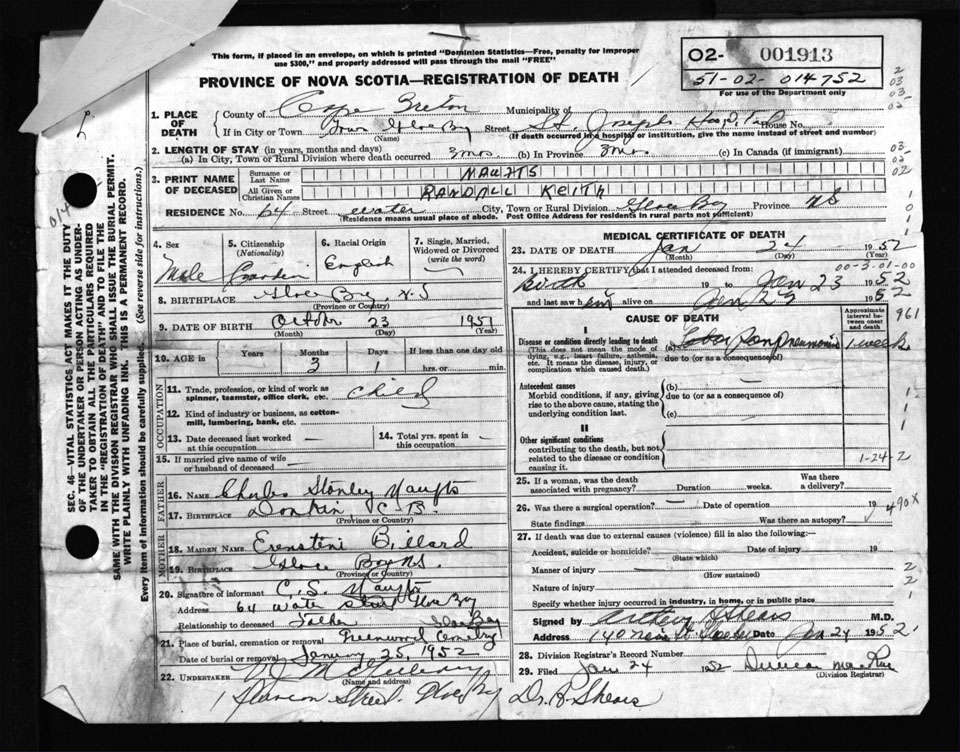 This form, if placed in an envelope, on which is printed "Dominion Statistics—Free, penalty for improper
use $300," and properly addressed will pass through the mail "FREE"
PROVINCE OF NOVA SCOTIA—REGISTRATION OF DEATH
02- 001913
51-02-014752
For use of the Department only
1. PLACE OF DEATH
County of Cape Breton Municipality of
If in City or Town Town Glace Bay Street St. Joseph's Hospital House No.
(Name) (If death occurred in a hospital or institution, give the name instead of street and number)
2. LENGTH OF STAY (in years, months and days)
(a) In City, Town or Rural Division where death occurred 3 mos. (b) In Province 3 mos. (c) In Canada (if immigrant)
3. PRINT NAME OF DECEASED
Surname or Last Name MAUGTS
All Given or Christian Names RANDALL KEITH
RESIDENCE No. 64 Street Water City, Town or Rural Division Glace Bay Province NS
(Residence means usual place of abode. Post Office Address for residents in rural parts not sufficient)
4. Sex Male
5. Citizenship (Nationality) Canadian
6. Racial Origin English
7. Single, Married, Widowed or Divorced (write the word)
8. BIRTHPLACE Glace Bay, N.S
(Province or Country)
9. DATE OF BIRTH October 23 1951
(Month) (Day) (Year)
10. AGE in Years Months 3 Days 1 If less than one day old hrs. or min.
OCCUPATION
11. Trade, profession, or kind of work as spinner, teamster, office clerk, etc. Child
12. Kind of industry or business, as cotton-mill, lumbering, bank, etc.
13. Date deceased last worked at this occupation —
14. Total yrs. spent in this occupation —
15. If married give name of wife or husband of deceased —
FATHER
16. NAME Charles Stanley
17. BIRTHPLACE Donkin C.B.
(Province or Country)
MOTHER
18. MAIDEN NAME Billard
19. BIRTHPLACE Glace Bay NS
(Province or Country)
20. Signature of informant C. S.
Address 64 Water Street Glace Bay
Relationship to deceased Father
21. Place of burial, cremation or removal Greenwood Cemetery Glace Bay
Date of burial or removal January 25, 1952
22. UNDERTAKER
(Name and address)
Street. Glace Bay
MEDICAL CERTIFICATE OF DEATH
23. DATE OF DEATH Jan 24 1952
(Month) (Day) (Year)
00-3-01-00
24. I HEREBY CERTIFY that I attended deceased from:
Birth 19 to Jan 23 1952
and last saw him alive on Jan 23 1952
CAUSE OF DEATH
Approximate interval between onset and death
961
I
Disease or condition directly leading to death
(This does not mean the mode of dying, e.g., heart failure, asthenia, etc. It means the disease, injury, or complication which caused death.)
(a) Lobar Pneumonia 1 week
due to (or as a consequence of)
Antecedent causes
Morbid conditions, if any, giving rise to the above cause, stating the underlying condition last.
(b) —
due to (or as a consequence of)
(c)
II
Other significant conditions
contributing to the death, but not related to the disease or condition causing it.
1-24-2
25. If a woman, was the death associated with pregnancy? Duration weeks. Was there a delivery?
26. Was there a surgical operation? — Date of operation 19
490X
State findings Was there an autopsy?
27. If death was due to external causes (violence) fill in also the following:—
Accident, suicide or homicide? Date of injury 19
(State which)
Manner of injury
(How sustained)
Nature of injury
Specify whether injury occurred in industry, in home, or in public place
Signed by M.D.
Address 140 Main St Date Jan 24 1952
28. Division Registrar's Record Number
29. Filed Jan 24 1952 Duncan MacRae
(Division Registrar)
Dr. A. Shears
SEC. 46—VITAL STATISTICS ACT MAKES IT THE DUTY
OF THE UNDERTAKER OR PERSON ACTING AS UNDER-
TAKER TO OBTAIN ALL THE PARTICULARS REQUIRED
IN THE "REGISTRATION OF DEATH" AND TO FILE THE
SAME WITH THE DIVISION REGISTRAR WHO SHALL ISSUE THE BURIAL PERMIT.
WRITE PLAINLY WITH UNFADING INK. THIS IS A PERMANENT RECORD.
Every item of information should be carefully supplied. (See reverse side for instructions.)
014